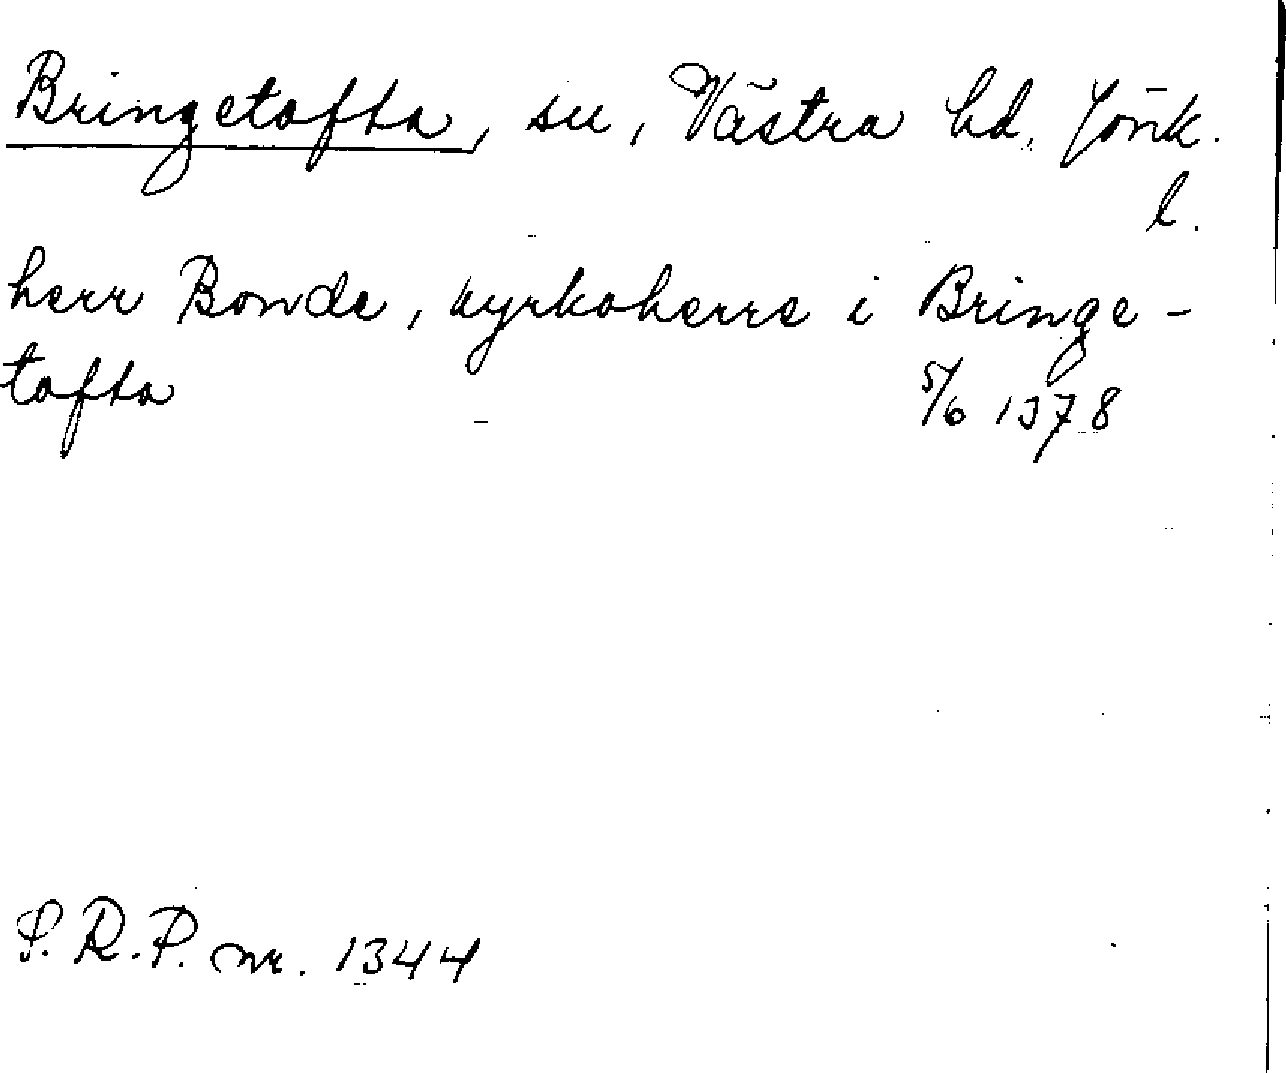 Bringetofta, sn, Västra hd. Jönk.
l.
herr Bonde, kyrkoherre i Bringe-
tofta 5/6 1378
S.R.P. nr. 1344